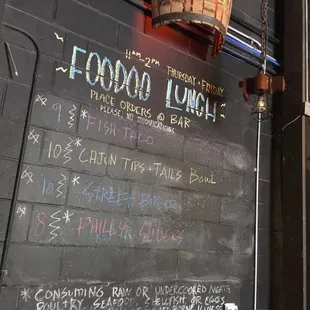 11AM-2PM THURSDAY + FRIDAY
FOODOO LUNCH
PLACE ORDERS @ BAR
*PLEASE, NO MODIFICATIONS*
9 * FISH TACO
10 * CAJUN TIPS + TAILS BOWL
10 * STREET BURGER
8 * PHILLY SLIDERS
* CONSUMING RAW OR UNDERCOOKED MEATS
POULTRY, SEAFOOD, SHELLFISH OR EGGS
ILLNESS